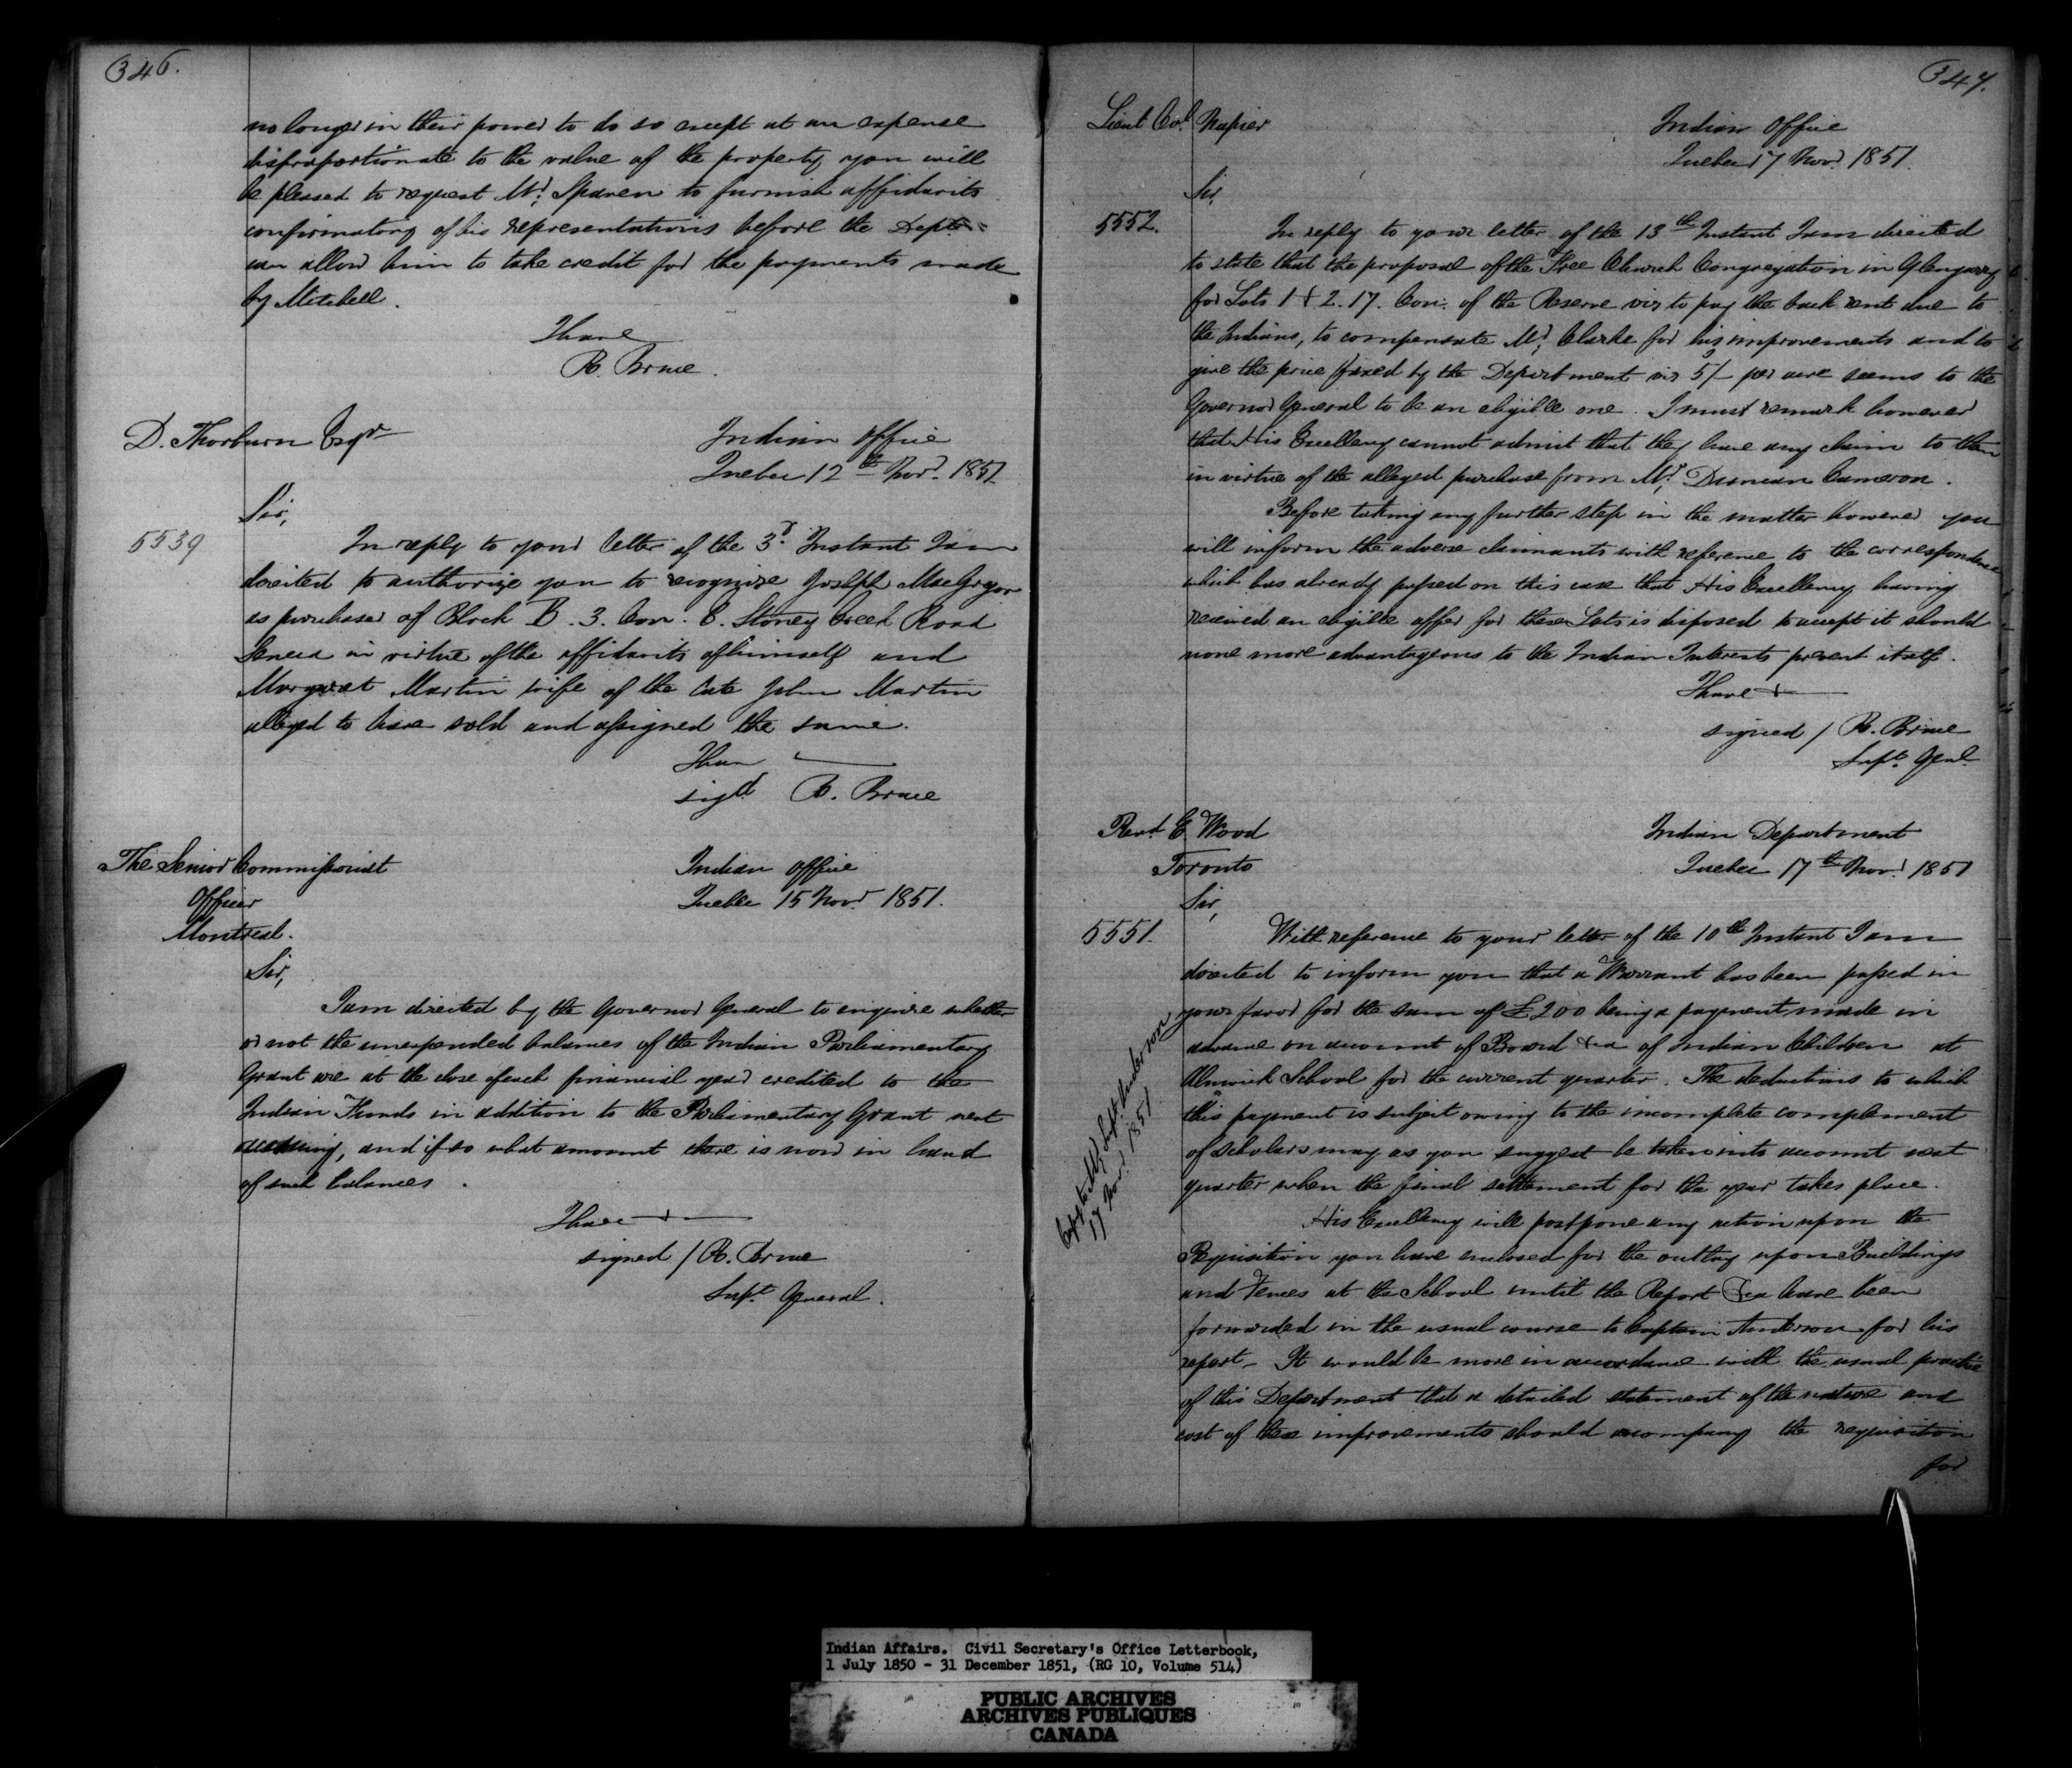 346.
no longer in their power to do so except at an expense
disproportionate to the value of the property you will
be pleased to request Mr. Sparen to furnish affidavits
confirmatory of his representations before the Deptt
can allow him to take credit for the payments made
by Mitchell.
I have
R. Bruce.
D. Thorburn Esqr
Indian Office
Quebec 12th Novr. 1851
Sir,
5539
In reply to your letter of the 3d. Instant I am
directed to authorize you to recognize Joseph MacGregor
as purchaser of Block B. 3. Con. E. Stoney Creek Road
Seneca in virtue of the affidavits of himself and
Margaret Martin wife of the late John Martin
alleged to have sold and assigned the same.
I have
sigd. R. Bruce
The Senior Commissariat
Officer
Montreal.
Indian Office
Quebec 15 Novr. 1851.
Sir,
I am directed by the Governor General to enquire whether
or not the unexpended balances of the Indian Parliamentary
Grant are at the close of each financial year credited to the
Indian Funds in addition to the Parliamentary Grant next
accruing, and if so what amount there is now in hand
of such balances.
I have
signed / R. Bruce
Supt. General.
347.
Lieut Col. Napier
Indian Office
Quebec 17 Novr. 1851.
Sir,
5552.
In reply to your letter of the 13th Instant I am directed
to state that the proposal of the Free Church Congregation in Glengarry
for Lots 1 & 2. 17. Con. of the Reserve viz to pay the back rent due to
the Indians, to compensate Mr. Clarke for his improvements and to
give the price fixed by the Department viz 5/- per acre seems to the
Governor General to be an eligible one. I must remark however
that His Excellency cannot admit that they have any claim to them
in virtue of the alleged purchase from Mr. Duncan Cameron.
Before taking any further step in the matter however you
will inform the adverse claimants with reference to the correspondence
which has already passed on this case that His Excellency having
received an eligible offer for these Lots is disposed to accept it should
none more advantageous to the Indian Interests present itself.
I have &
signed / R. Bruce
Supt. Genl.
Revd. E Wood
Toronto
Indian Department
Quebec 17th Novr. 1851
Sir,
5551.
With reference to your letter of the 10th Instant I am
directed to inform you that a Warrant has been passed in
your favor for the sum of £200 being a payment made in
advance on account of Board &ca of Indian Children at
Alnwick School for the current quarter. The deductions to which
this payment is subject owing to the incomplete complement
of scholars may as you suggest be taken into account next
quarter when the final settlement for the year takes place.
Copy to Supt. Anderson
17 Novr. 1851.
His Excellency will postpone any action upon the
Requisition you have enclosed for the outlay upon Buildings
and Fences at the School until the Report &ca have been
forwarded in the usual course to Captain Anderson for his
report - It would be more in accordance with the usual practice
of this Department that a detailed statement of the nature and
cost of these improvements should accompany the requisition
for
Indian Affairs. Civil Secretary's Office Letterbook,
1 July 1850 - 31 December 1851, (RG 10, Volume 514)
PUBLIC ARCHIVES
ARCHIVES PUBLIQUES
CANADA